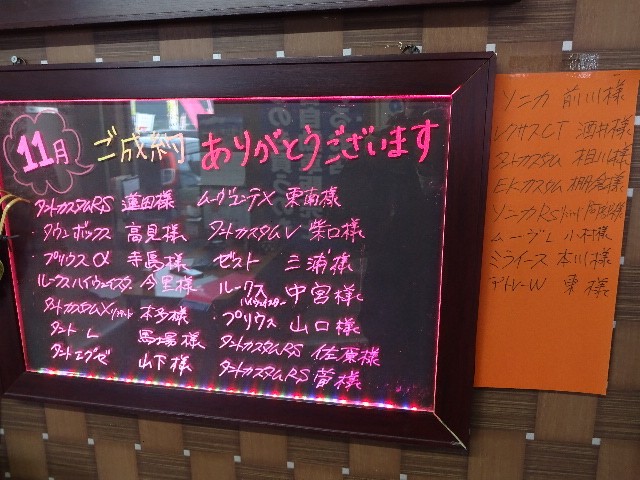 11月 ご成約 ありがとうございます
タントカスタムRS 蓮田様
タウンボックス 高見様
プリウスα 寺馬様
ルークスハイウェイスター 今里様
タントカスタムX 本多様
タントL 馬場様
タントエグゼ 山下様
ムーヴコンテX 東南様
タントカスタムV 柴口様
ゼスト 三浦様
ルークス ハイウェイスター 中宮様
プリウス 山口様
タントカスタムRS 佐原様
タントカスタムRS 菅様
ソニカ 前川様
レクサスCT 酒井様
タントカスタム 相川様
EKカスタム 棚倉様
ソニカRS
ムーブL 小村様
ミライース 本川様
アトレーW 東様